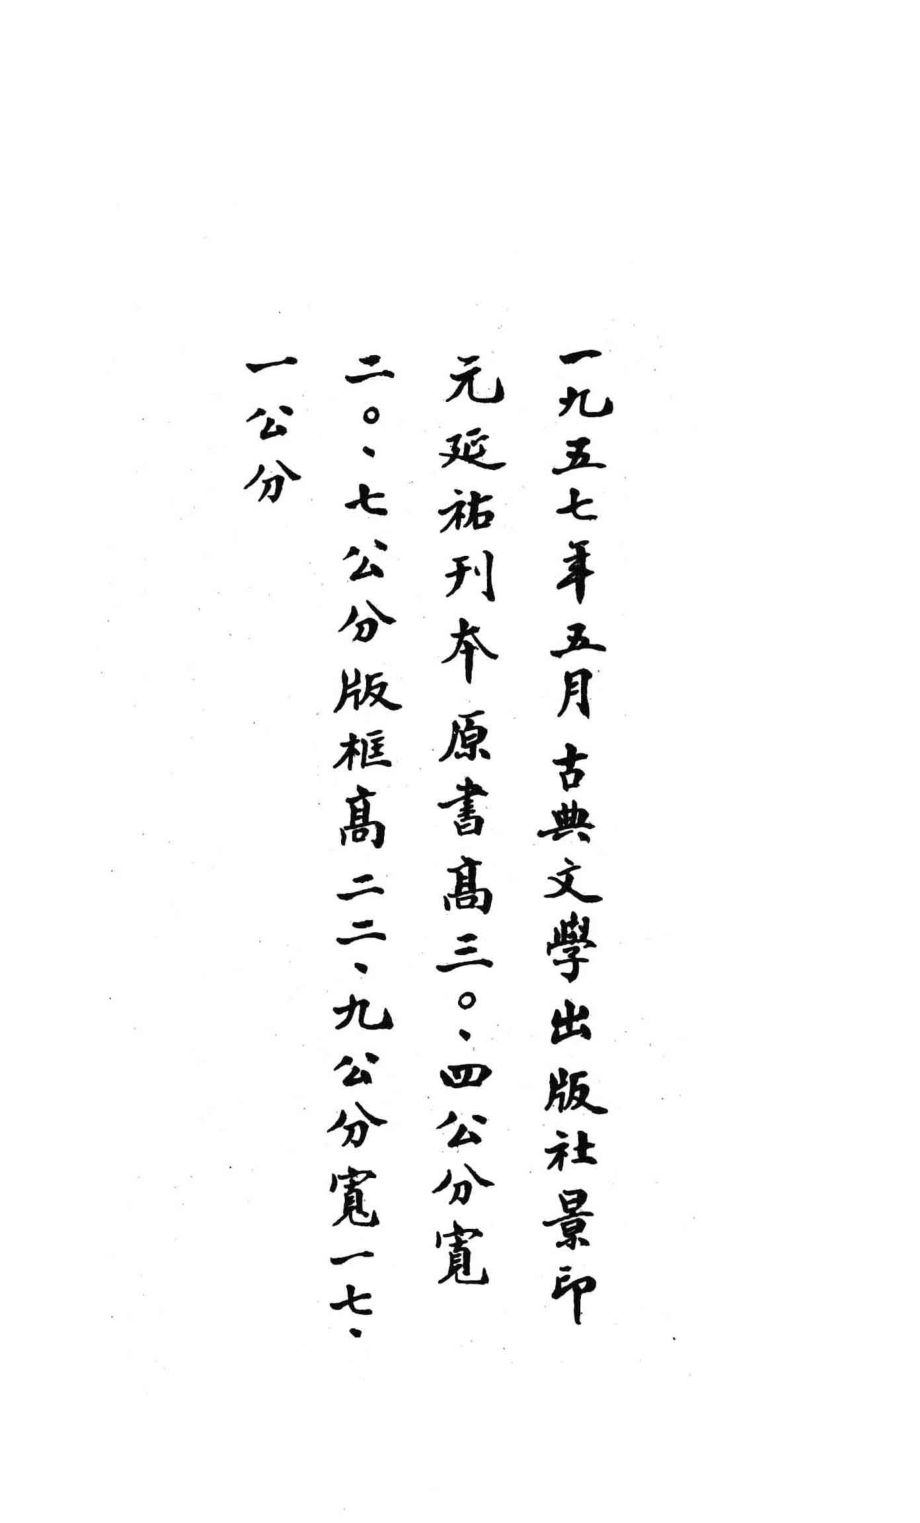 一九五七年五月古典文學出版社景印
元延祐刊本原書高三〇、四公分寬
二〇、七公分版框高二二、九公分寬一七、
一公分